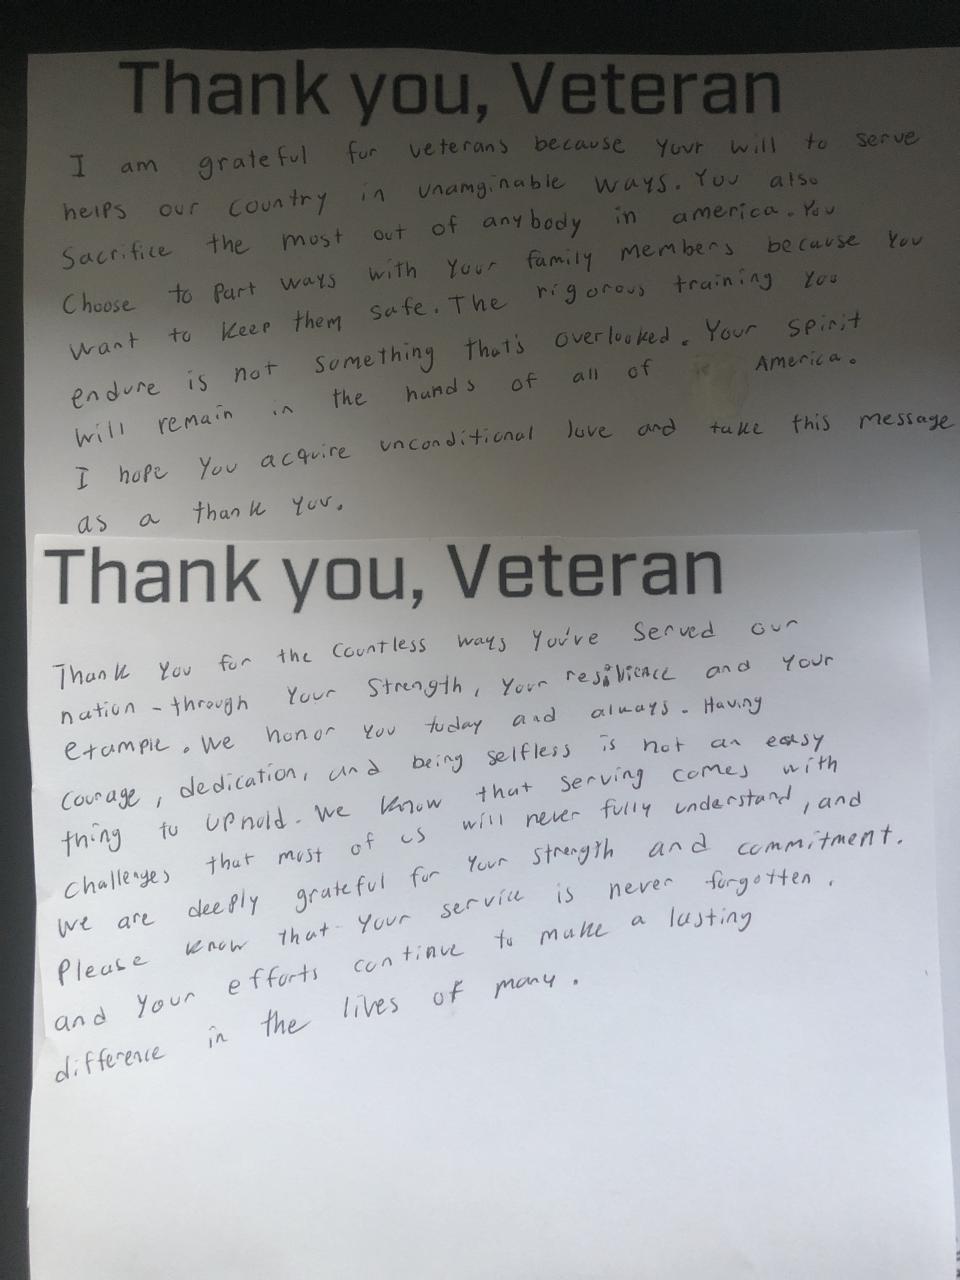 Thank you, Veteran
I am grateful for veterans because your will to serve
helps our country in unamginable ways. You also
Sacrifice the most out of anybody in america. You
Choose to Part ways with Your family members because You
want to keep them safe. The rigorous training You
endure is not something that's overlooked. Your Spirit
will remain in the hands of all of America.
I hope You acquire unconditional love and take this message
as a thank You.
Thank you, Veteran
Thank You for the Countless ways You've Served our
nation - through Your Strength, Your resilience and Your
example. We honor You today and always. Having
Courage, dedication, and being selfless is not an easy
thing to uphold. We know that serving comes with
challenges that most of us will never fully understand, and
we are deeply grateful for Your strength and commitment.
Please know that Your service is never forgotten.
and Your efforts continue to make a lasting
difference in the lives of many.